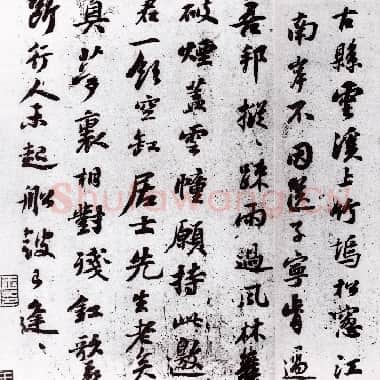 古縣雲溪上竹塢松窓江
南岸不因送子寧肯過
吾邦摐〻疎雨過風林舞
破煙蓋雲幢願持此邀
君一飲空缸居士先生老矣
真夢裏相對殘釭歌
斷行人未起船鼓已逢〻
Shufawang.cn